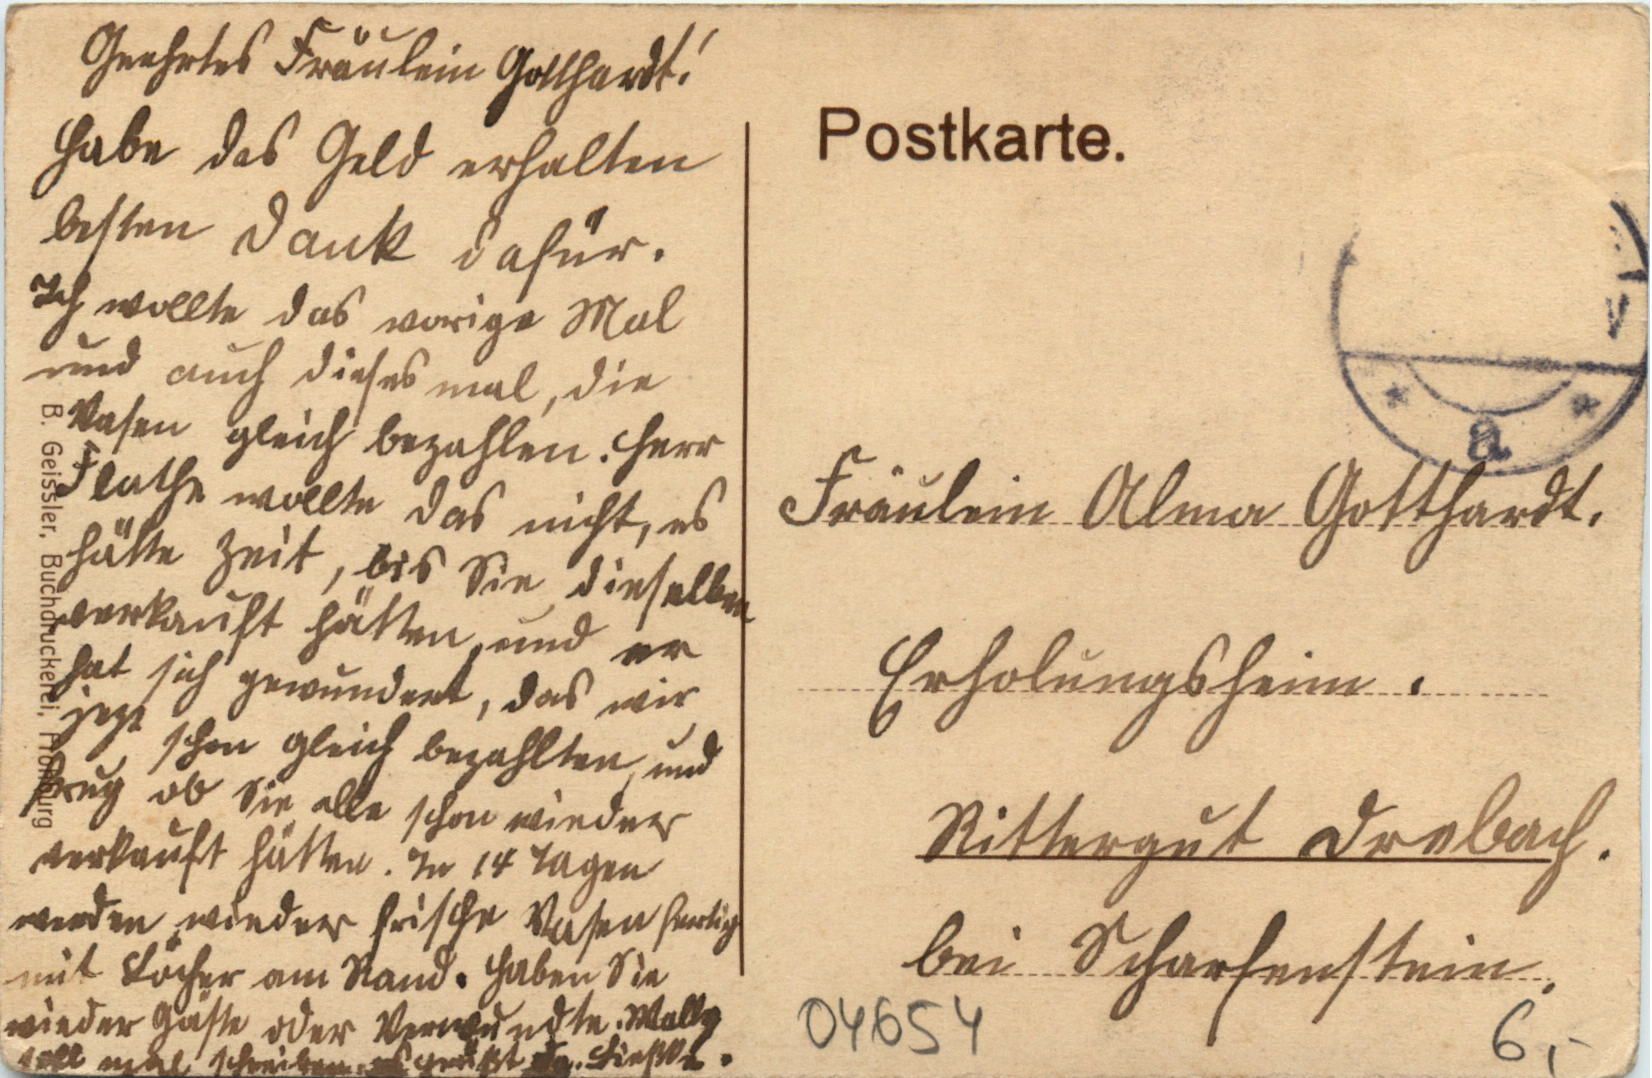 Geehrtes Fräulein Gotthardt!
Habe das Geld erhalten
besten Dank dafür.
Ich wollte das vorige Mal
und auch dieses mal, die
Vasen gleich bezahlen. Herr
Flathe wollte das nicht, es
hätte Zeit, bis Sie dieselben
verkauft hätten, und er
hat sich gewundert, das wir
jezt schon gleich bezahlten, und
frug ob Sie alle schon wieder
verkauft hätten. In 14 Tagen
werden wieder frische Vasen fertig
mit Löcher am Rand. Haben Sie
wieder Gäste oder Verwundte. Wally
soll mal schreiben. es grüßt
B. Geissler, Buchdruckerei, Frohburg
Postkarte.
a
Fräulein Alma Gotthardt.
Erholungsheim.
Rittergut Drebach.
bei Scharfenstein.
04654
6,-